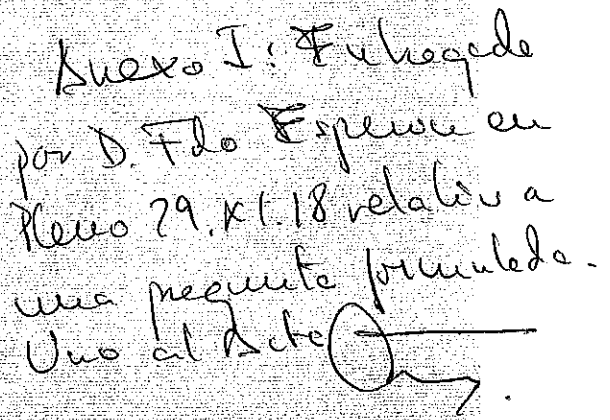 Anexo I: Entregado
por D. Fdo Esperon en
Pleno 29.XI.18 relativa a
una pregunta formulada.
Uno al Acta